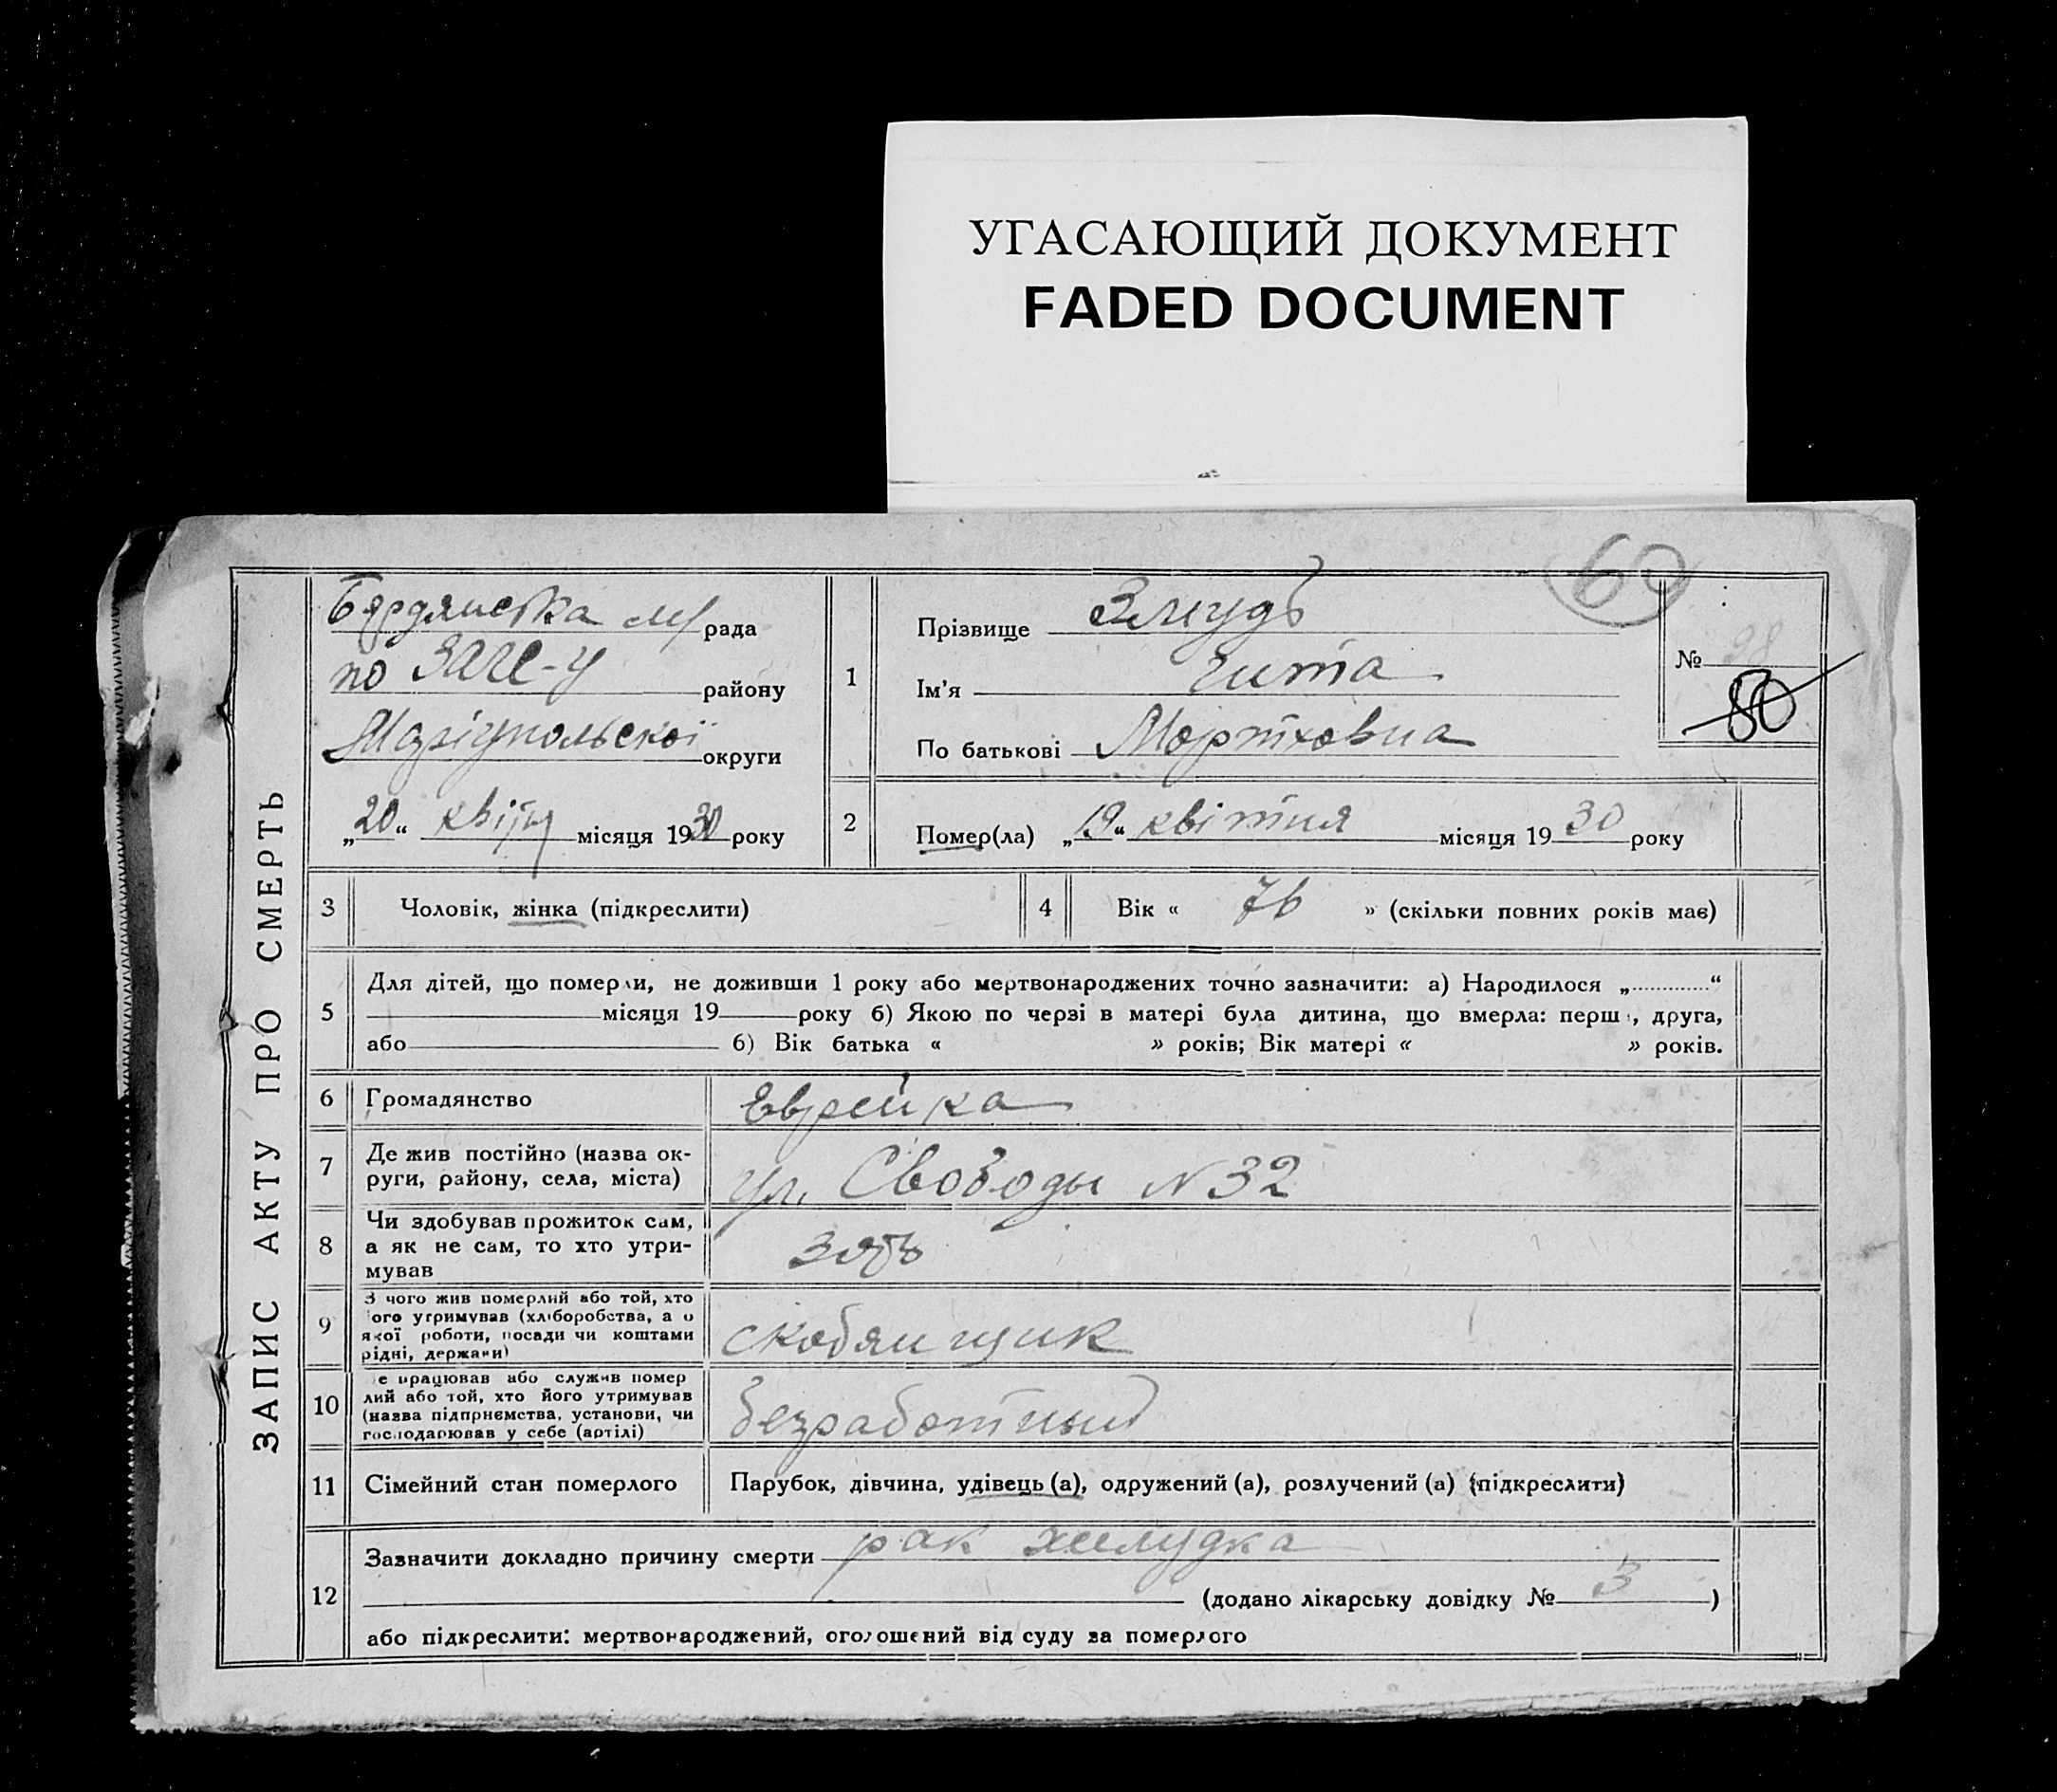 УГАСАЮЩИЙ ДОКУМЕНТ
FADED DOCUMENT
69
ЗАПИС АКТУ ПРО СМЕРТЬ
Бердянська м/рада
по ЗАГС-у району
Маріупольскої округи
„20“ квітн місяця 1930 року
1
Прізвище Змудъ
Ім'я Гита
По батькові Мортховна
№ 98
80
2
Помер(ла) „19“ квітня місяця 1930 року
3 Чоловік, жінка (підкреслити)
4 Вік « 76 » (скільки повних років має)
5
Для дітей, що померли, не доживши 1 року або мертвонароджених точно зазначити: а) Народилося „ “
місяця 19 року б) Якою по черзі в матері була дитина, що вмерла: перша, друга,
або б) Вік батька « » років; Вік матері « » років.
6 Громадянство Еврейка
7
Де жив постійно (назва ок-
руги, району, села, міста)
ул. Свободы №32
8
Чи здобував прожиток сам,
а як не сам, то хто утри-
мував
Зять
9
З чого жив померлий або той, хто
його утримував (хліборобства, а о
якої роботи, посади чи коштами
рідні, держави)
скобянщик
10
Де працював або служив помер
лий або той, хто його утримував
(назва підприємства, установи, чи
господарював у себе (артілі)
безработный
11 Сімейний стан померлого Парубок, дівчина, удівець (а), одружений (а), розлучений (а) (підкреслити)
12
Зазначити докладно причину смерти рак желудка
(додано лікарську довідку № 3 )
або підкреслити: мертвонароджений, оголошений від суду за померлого